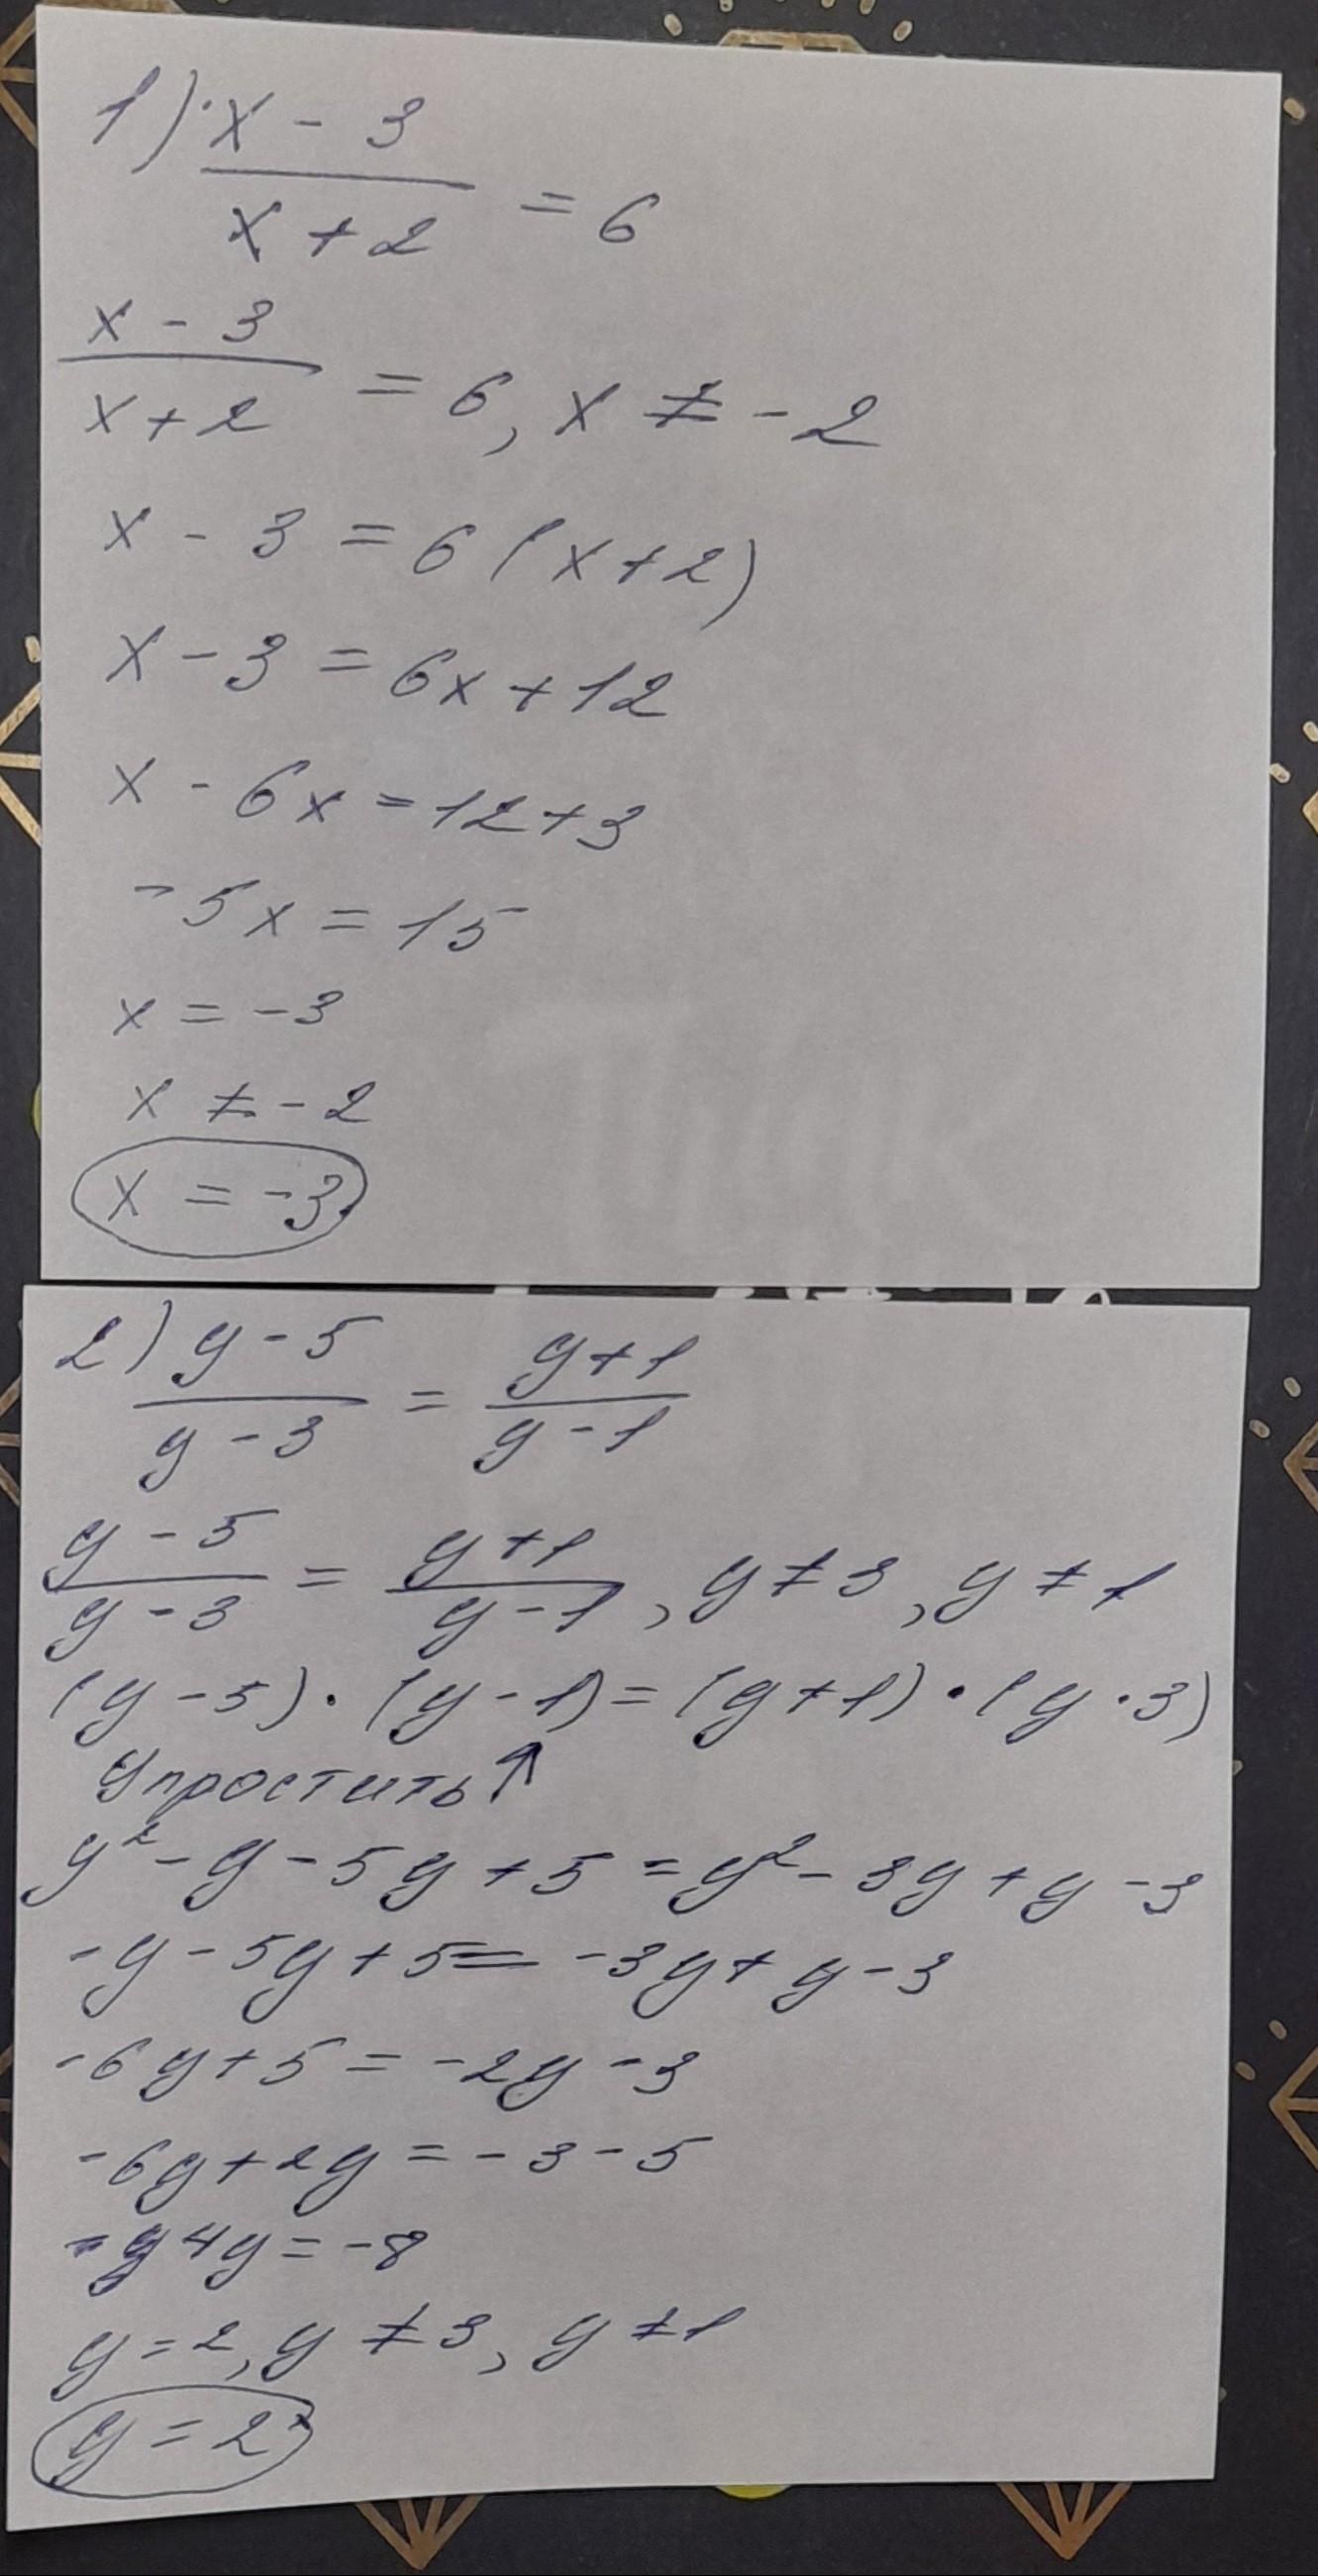 1) x - 3
x + 2 = 6
x - 3
x + 2 = 6, x ≠ - 2
x - 3 = 6 (x + 2)
x - 3 = 6x + 12
x - 6x = 12 + 3
- 5x = 15
x = -3
x ≠ - 2
x = -3
2) y - 5 = y + 1
y - 3 y - 1
y - 5 = y + 1
y - 3 y - 1, y ≠ 3, y ≠ 1
(y - 5) · (y - 1) = (y + 1) · (y · 3)
Упростить ↑
y² - y - 5y + 5 = y² - 3y + y - 3
- y - 5y + 5 = - 3y + y - 3
- 6y + 5 = - 2y - 3
- 6y + 2y = - 3 - 5
- 4y = - 8
y = 2, y ≠ 3, y ≠ 1
y = 2